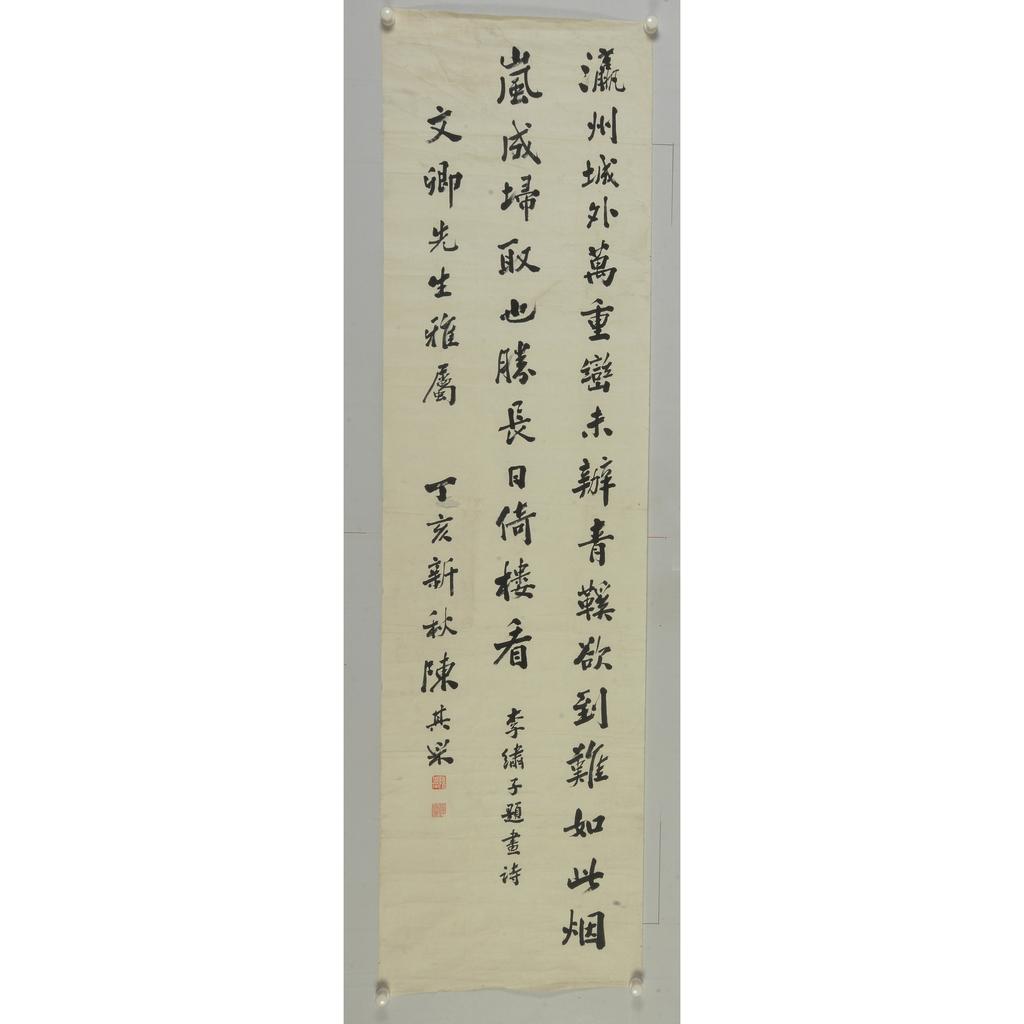 瀛州城外萬重巒未辦青鞵欲到難如此烟
嵐成埽取也勝長日倚樓看
李繡子題畫詩
文卿先生雅屬
丁亥新秋陳其采